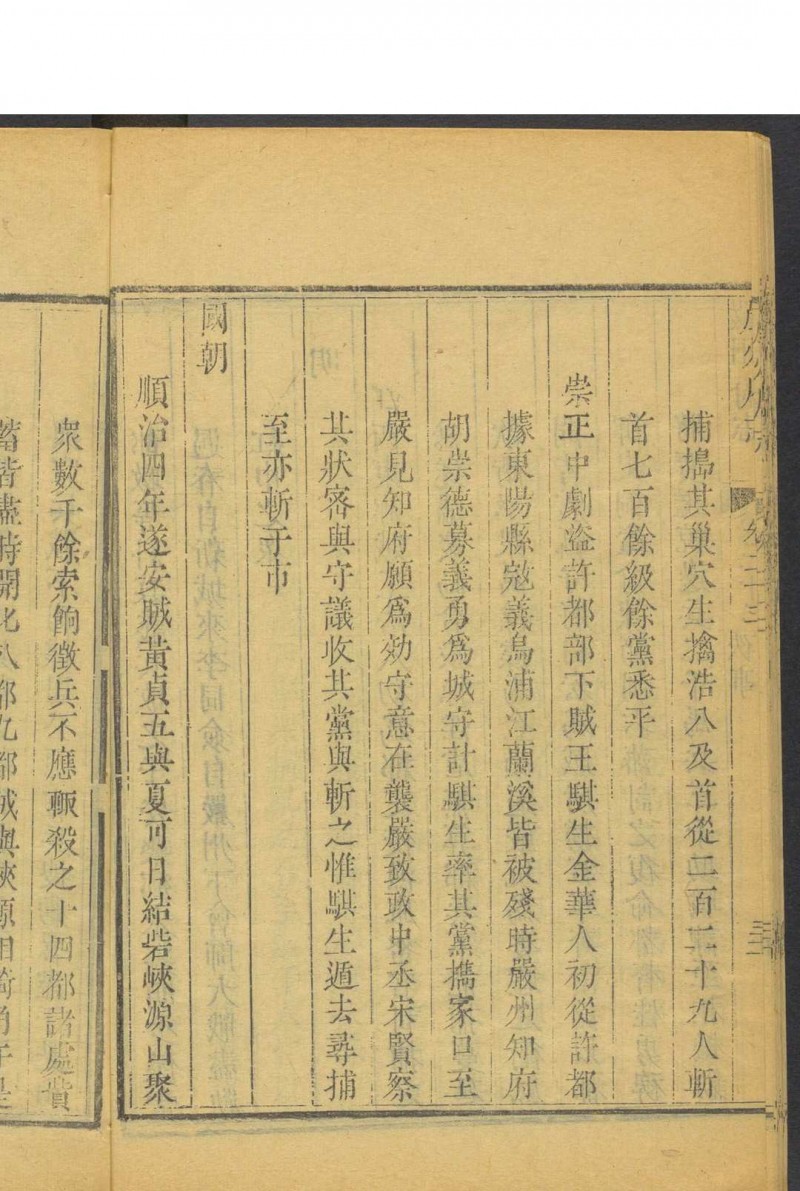 捕搗其巢穴生擒浩八及首從二百二十九人斬
首七百餘級餘黨悉平
崇正中劇盜許都部下賊王騏生金華人初從許都
據東陽縣寇義烏浦江蘭溪皆被殘時嚴州知府
胡崇德募義勇為城守計騏生率其黨擕家口至
嚴見知府願為効守意在襲嚴致政中丞宋賢察
其狀密與守議收其黨與斬之惟騏生遁去尋捕
至亦斬于市
國朝
順治四年遂安賊黃貞五與夏可日結砦峽源山聚
衆數千餘索餉徵兵不應輒殺之十四都諸處貲
蓄皆盡時開化八都九都賊與峽源相